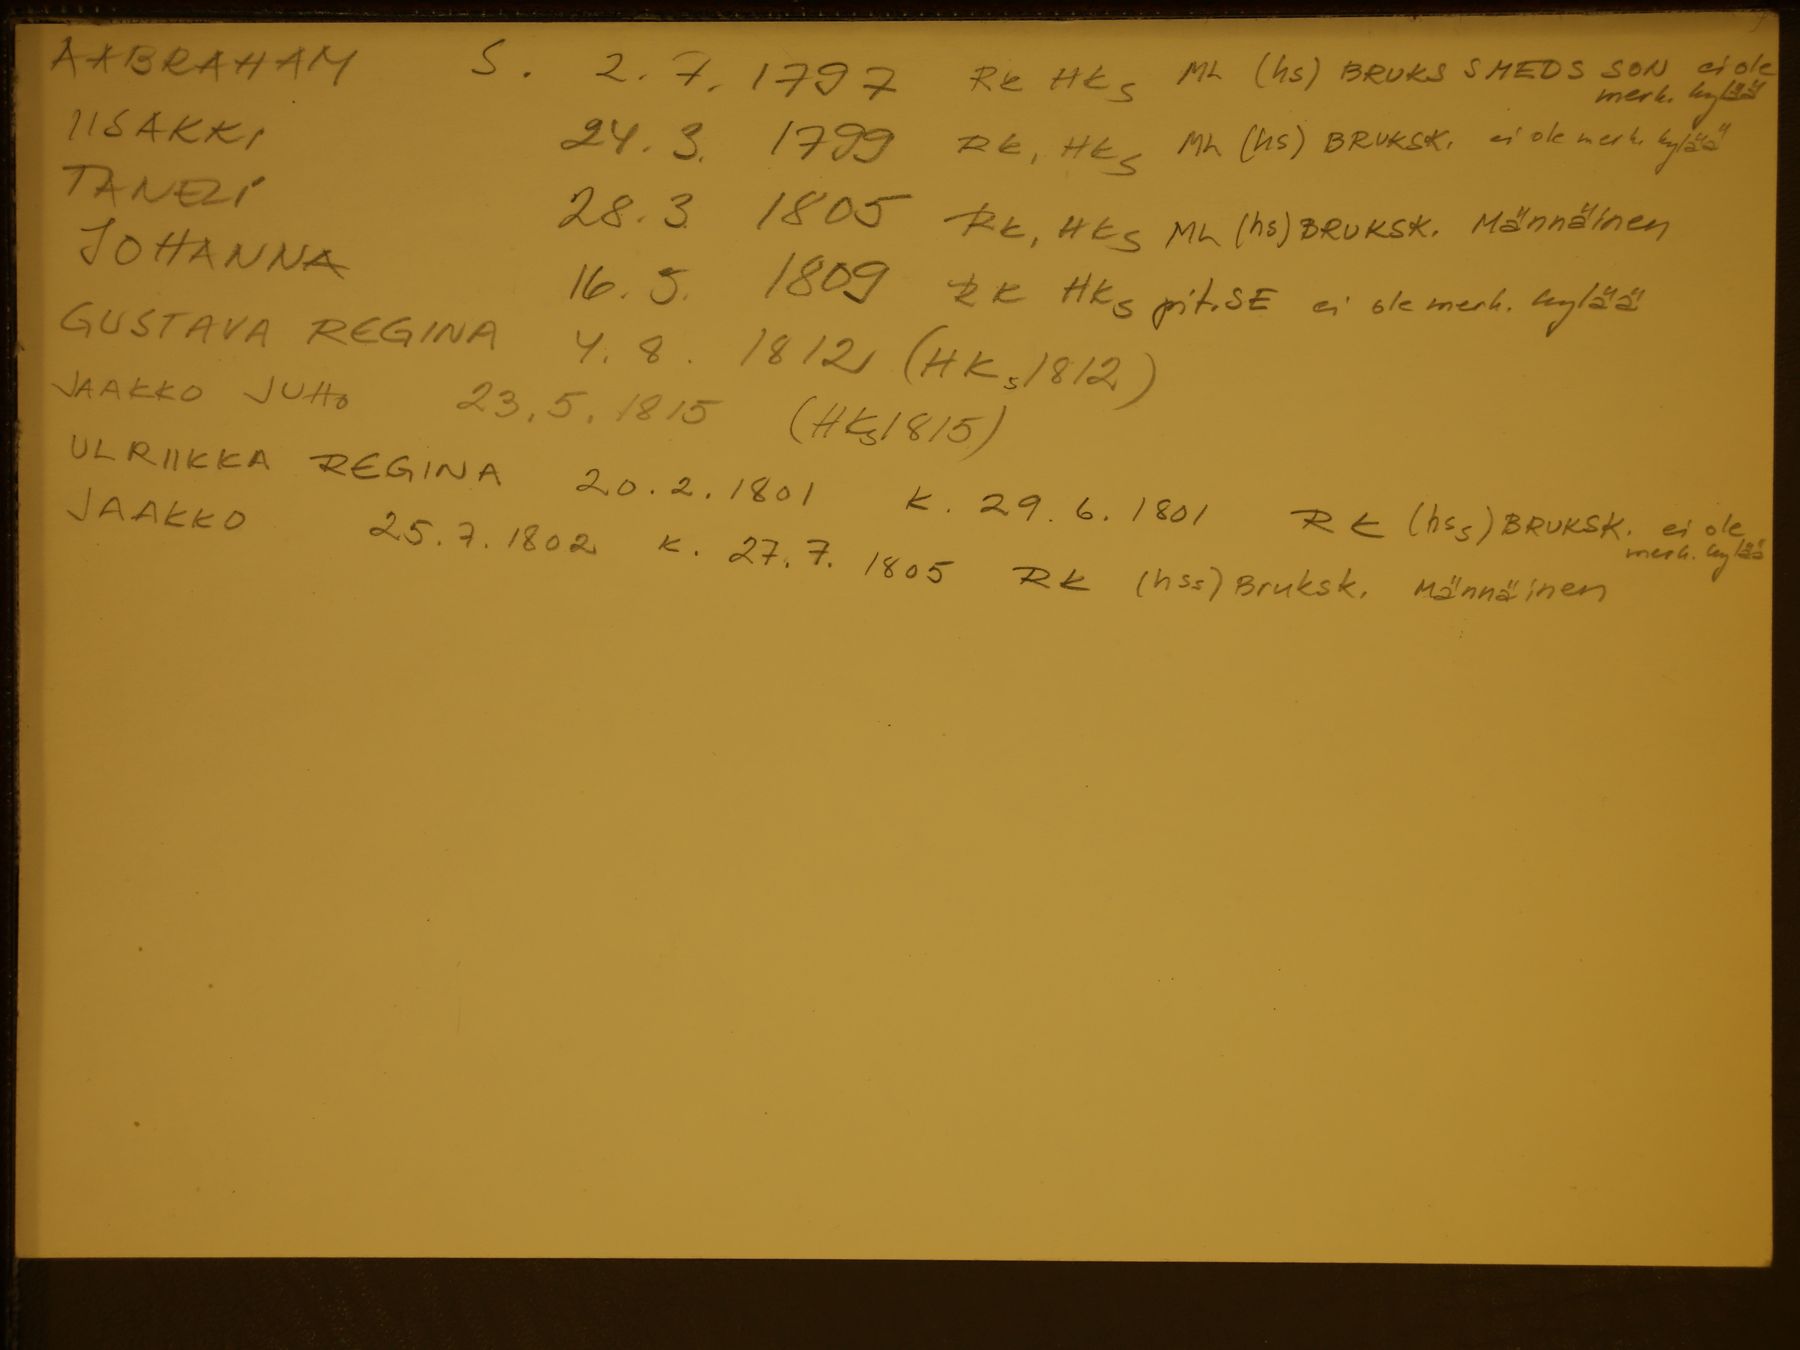 AABRAHAM S. 2.7.1797 RK HKs ML (hs) BRUKS SMEDS SON ei ole merk. kylää
IISAKKI 24.3. 1799 RK, HKs ML (hs) BRUKSK. ei ole merk. kylää
TANELI 28.3 1805 RK, HKs ML (hs) BRUKSK. Männäinen
JOHANNA 16.5. 1809 RK HKs pit.SE ei ole merk. kylää
GUSTAVA REGINA 4.8. 1812 (HKs 1812)
JAAKKO JUHO 23.5.1815 (HKs 1815)
ULRIIKKA REGINA 20.2.1801 K. 29.6.1801 RK (hss) BRUKSK. ei ole merk. kylää
JAAKKO 25.7.1802 K. 27.7. 1805 RK (hss) Bruksk. Männäinen